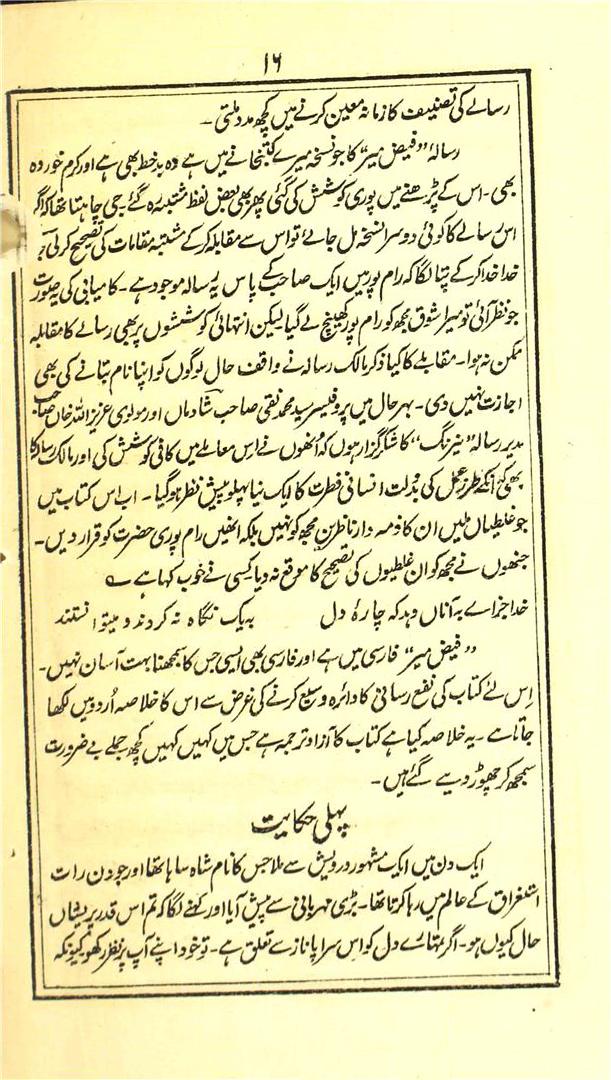 ۱۶
رسالے کی تصنیف کا زمانہ معین کرنے میں کچھ مدد ملتی۔
رسالۂ ’’فیض میر‘‘ کا جو نسخہ میرے کتبخانے میں ہے وہ بدخط بھی ہے اور کرم خوردہ
بھی۔ اس کے پڑھنے میں پوری کوشش کی گئی پھر بھی بعض لفظ مشتبہ رہ گئے۔ جی چاہتا تھا کہ اگر
اس رسالے کا کوئی دوسرا نسخہ مل جائے تو اس سے مقابلہ کر کے مشتبہ مقامات کی تصحیح کر لی جائے
خدا خدا کر کے پتا لگا کہ رام پور میں ایک صاحب کے پاس یہ رسالہ موجود ہے۔ کامیابی کی یہ صورت
جو نظر آئی تو میرا شوق مجھ کو رام پور کھینچ لے گیا لیکن انتہائی کوششوں پر بھی رسالے کا مقابلہ
ممکن نہ ہوا۔ مقابلے کا کیا ذکر مالک رسالہ نے واقف حال لوگوں کو اپنا نام بتانے کی بھی
اجازت نہیں دی۔ بہرحال میں پروفیسر سید محمد نقی صاحب شادماں اور مولوی عزیز اللہ خاں صاحب
مدیر رسالہ ’’نیرنگ‘‘ کا شکر گزار ہوں کہ اُنھوں نے اِس معاملے میں کافی کوشش کی اور مالک رسالہ کا
بھی کہ انکے طرز عمل کی بدولت انسانی فطرت کا ایک نیا پہلو پیش نظر ہو گیا۔ اب اس کتاب میں
جو غلطیاں ملیں ان کا ذمہ دار ناظرین مجھ کو نہیں بلکہ انھیں رام پوری حضرت کو قرار دیں۔
جنھوں نے مجھ کو ان غلطیوں کی تصحیح کا موقع نہ دیا۔ کسی نے خوب کہا ہے ؎
خدا جزاے بہ آناں دہد کہ چارۂ دل بہ یک نگاہ نہ کردند و میتوانستند
’’فیض میر‘‘ فارسی میں ہے اور فارسی بھی ایسی جس کا سمجھنا بہت آسان نہیں۔
اِس لئے کتاب کی نفع رسانی کا دائرہ وسیع کرنے کی غرض سے اس کا خلاصہ اُردو میں لکھا
جاتا ہے۔ یہ خلاصہ کیا ہے کتاب کا آزاد ترجمہ ہے جس میں کہیں کہیں کچھ جملے بے ضرورت
سمجھ کر چھوڑ دیے گئے ہیں۔
پہلی حکایت
ایک دن میں ایک مشہور درویش سے ملا جس کا نام شاہ ساہا تھا اور جو دن رات
استغراق کے عالم میں رہا کرتا تھا۔ بڑی مہربانی سے پیش آیا اور کہنے لگا کہ تم اس قدر پریشاں
حال کیوں ہو۔ اگر تمہارے دل کو اس سراپا ناز سے تعلق ہے۔ تو خود اپنے آپ پر نظر رکھو کیونکہ